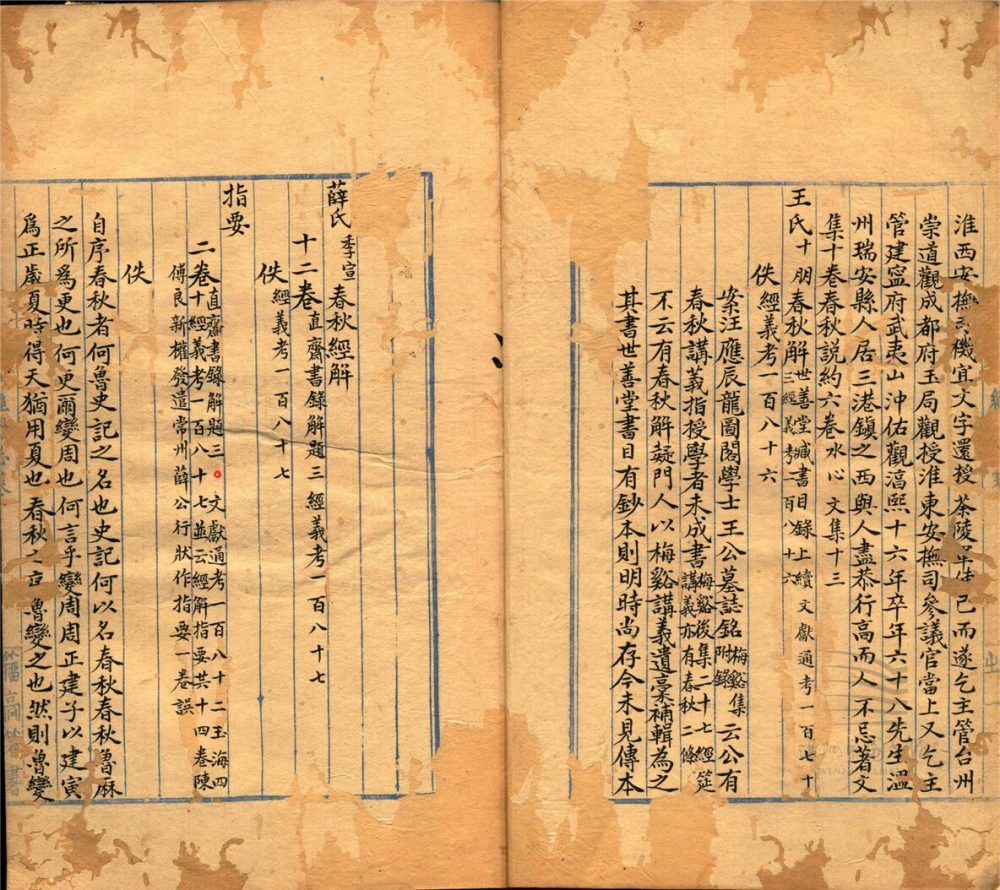 淮西安撫司機宜文字還授茶陵軍使已而遂乞主管台州
崇道觀成都府玉局觀授淮東安撫司參議官當上又乞主
管建寧府武夷山沖佑觀淳熙十六年卒年六十八先生溫
州瑞安縣人居三港鎮之西與人盡恭行高而人不忌著文
集十卷春秋説約六卷水心文集十三
王氏十朋春秋解世善堂藏書目錄上續文獻通考一百七十
三經義考一百八十六
佚經義考一百八十六
案汪應辰龍圖閣學士王公墓誌銘梅谿集附錄云公有
春秋講義指授學者未成書梅谿後集二十七經筵
講義亦有春秋二條
不云有春秋解疑門人以梅谿講義遺稾補輯為之
其書世善堂書目有鈔本則明時尚存今未見傳本
薛氏季宣春秋經解
十二卷直齋書錄解題三經義考一百八十七
佚經義考一百八十七
指要
二卷直齋書錄解題三。文獻通考一百八十二玉海四
十經義考一百八十七並云經解指要共十四卷陳
傅良新權發遣常州薛公行狀作指要一卷誤
佚
自序春秋者何魯史記之名也史記何以名春秋春秋魯厤
之所為更也何更爾變周也何言乎變周周正建子以建寅
爲正歲夏時得天猶用夏也春秋之魯變之也然則魯變